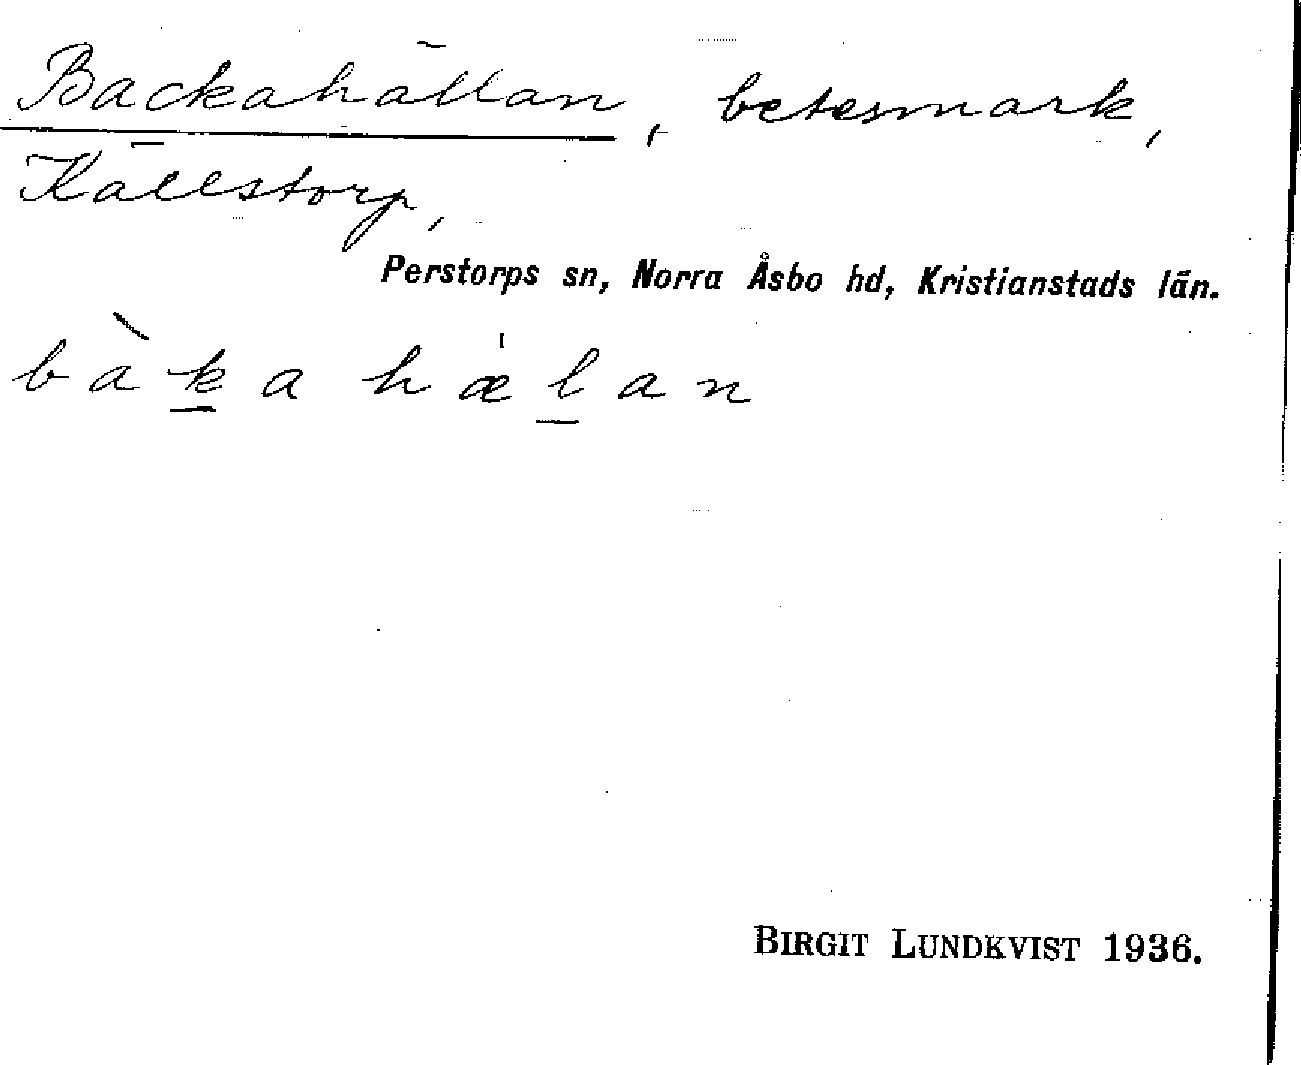 Backahällan, betesmark,
Källstorp,
Perstorps sn, Norra Åsbo hd, Kristianstads län.
bàka hælan
BIRGIT LUNDKVIST 1936.